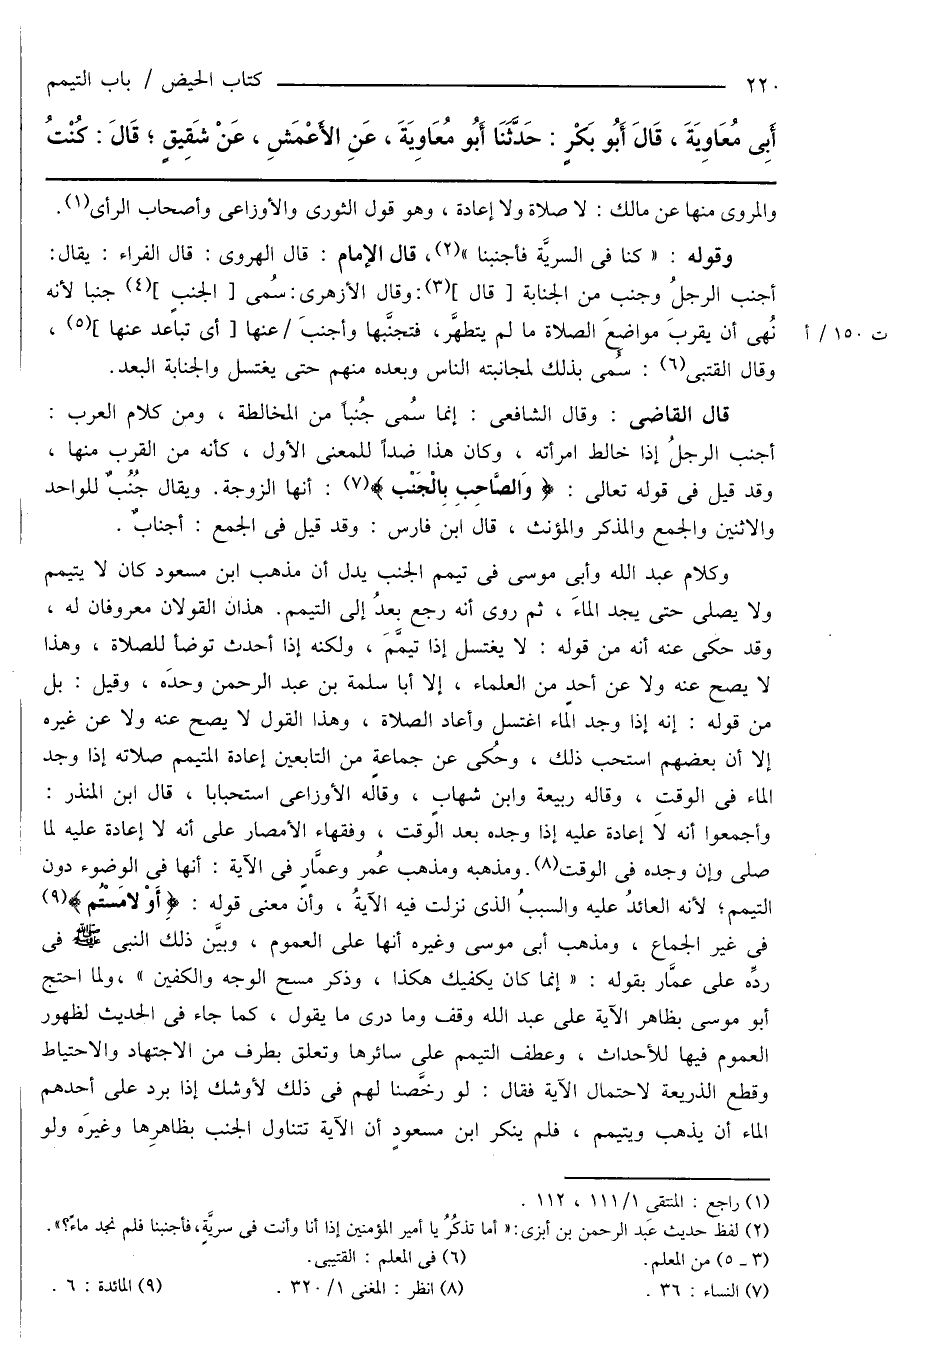 ٢٢٠ ـــــــ كتاب الحيض / باب التيمم
أَبِى مُعَاوِيَةَ ، قَالَ أَبُو بَكْرٍ : حَدَّثَنَا أَبُو مُعَاوِيَةَ ، عَنِ الأَعْمَشِ ، عَنْ شَقِيقٍ ؛ قَالَ : كُنْتُ
والمروى منها عن مالك : لا صلاة ولا إعادة ، وهو قول الثورى والأوزاعى وأصحاب الرأى(١).
وقوله : « كنا فى السريَّة فأجنبنا »(٢)، قال الإمام : قال الهروى : قال الفراء : يقال:
أجنب الرجلُ وجنب من الجنابة [ قال ](٣):وقال الأزهرى:سُمى [ الجنب ](٤) جنبا لأنه
نُهى أن يقربَ مواضعَ الصلاة ما لم يتطهَّر ، فتجنَّبها وأجنبَ /عنها [ أى تباعد عنها ](٥) ،
ت ١٥٠ / أ
وقال القتبى(٦) : سُمى بذلك لمجانبته الناس وبعده منهم حتى يغتسل والجنابة البعد.
قال القاضى : وقال الشافعى : إنما سُمى جُنباً من المخالطة ، ومن كلام العرب :
أجنب الرجلُ إذا خالط امرأته ، وكان هذا ضداً للمعنى الأول ، كأنه من القرب منها ،
وقد قيل فى قوله تعالى : ﴿ وَالصَّاحِبِ بِالْجَنْبِ ﴾(٧) : أنها الزوجة. ويقال جُنُبٌ للواحد
والاثنين والجمع والمذكر والمؤنث ، قال ابن فارس : وقد قيل فى الجمع : أجنابٌ .
وكلام عبد الله وأبى موسى فى تيمم الجنب يدل أن مذهب ابن مسعود كان لا يتيمم
ولا يصلى حتى يجد الماءَ ، ثم روى أنه رجع بعدُ إلى التيمم. هذان القولان معروفان له ،
وقد حكَى عنه أنه من قوله : لا يغتسل إذا تيمَّمَ ، ولكنه إذا أحدث توضأ للصلاة ، وهذا
لا يصح عنه ولا عن أحدٍ من العلماء ، إلا أبا سلمة بن عبد الرحمن وحدَه ، وقيل : بل
من قوله : إنه إذا وجد الماء اغتسل وأعاد الصلاة ، وهذا القول لا يصح عنه ولا عن غيره
إلا أن بعضهم استحب ذلك ، وحُكى عن جماعةٍ من التابعين إعادة المتيمم صلاته إذا وجد
الماء فى الوقتِ ، وقاله ربيعة وابن شهابٍ ، وقاله الأوزاعى استحبابا ، قال ابن المنذر :
وأجمعوا أنه لا إعادة عليه إذا وجده بعد الوقت ، وفقهاء الأمصار على أنه لا إعادة عليه لما
صلى وإن وجده فى الوقت(٨).ومذهبه ومذهب عُمر وعمَّارٍ فى الآية : أنها فى الوضوء دون
التيمم؛ لأنه العائدُ عليه والسببُ الذى نزلت فيه الآيةُ ، وأن معنى قوله : ﴿ أَوْ لامَسْتُم ﴾(٩)
فى غير الجماع ، ومذهب أبى موسى وغيره أنها على العموم ، وبيَّن ذلك النبى ﷺ فى
ردِّه على عمَّار بقوله : « إنما كان يكفيك هكذا ، وذكر مسح الوجه والكفين » ،ولما احتج
أبو موسى بظاهر الآية على عبد الله وقف وما درى ما يقول ، كما جاء فى الحديث لظهور
العموم فيها للأحداث ، وعطف التيمم على سائرها وتعلق بطرف من الاجتهاد والاحتياط
وقطع الذريعة لاحتمال الآية فقال : لو رخَّصنا لهم فى ذلك لأوشك إذا برد على أحدهم
الماء أن يذهب ويتيمم ، فلم ينكر ابن مسعودٍ أن الآية تتناول الجنب بظاهرِها وغيرَه ولو
(١) راجع : المنتقى ١/ ١١١ ، ١١٢ .
(٢) لفظ حديث عَبد الرحمن بن أبزى:« أما تذكُرُ يا أمير المؤمنين إذا أنا وأنت فى سريَّةٍ،فأجنبنا فلم نجد ماءً؟».
(٣ ـ ٥) من المعلم. (٦) فى المعلم : القتيبى.
(٧) النساء : ٣٦ . (٨) انظر : المغنى ١/ ٣٢٠ . (٩) المائدة : ٦ .